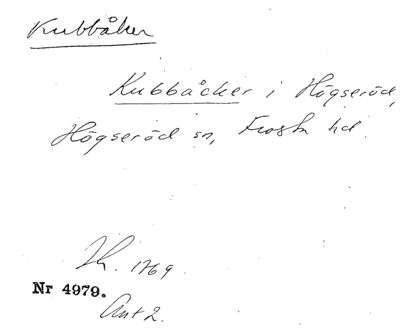 Kubbåker
Kubbåcker i Högseröd,
Högseröd sn, Frosta hd.
Sk. 1769.
Nr 4979.
Ant 2.